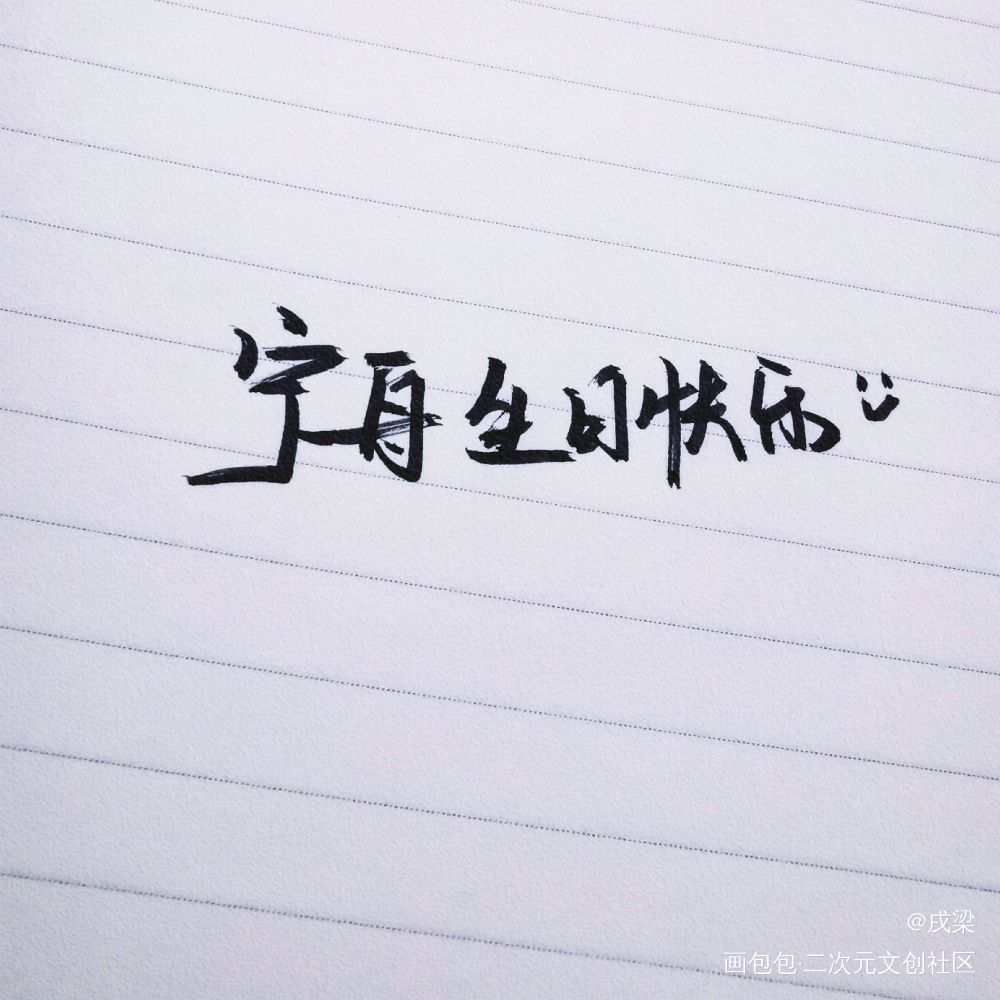 宁再生日快乐
@戌梁
画包包·二次元文创社区